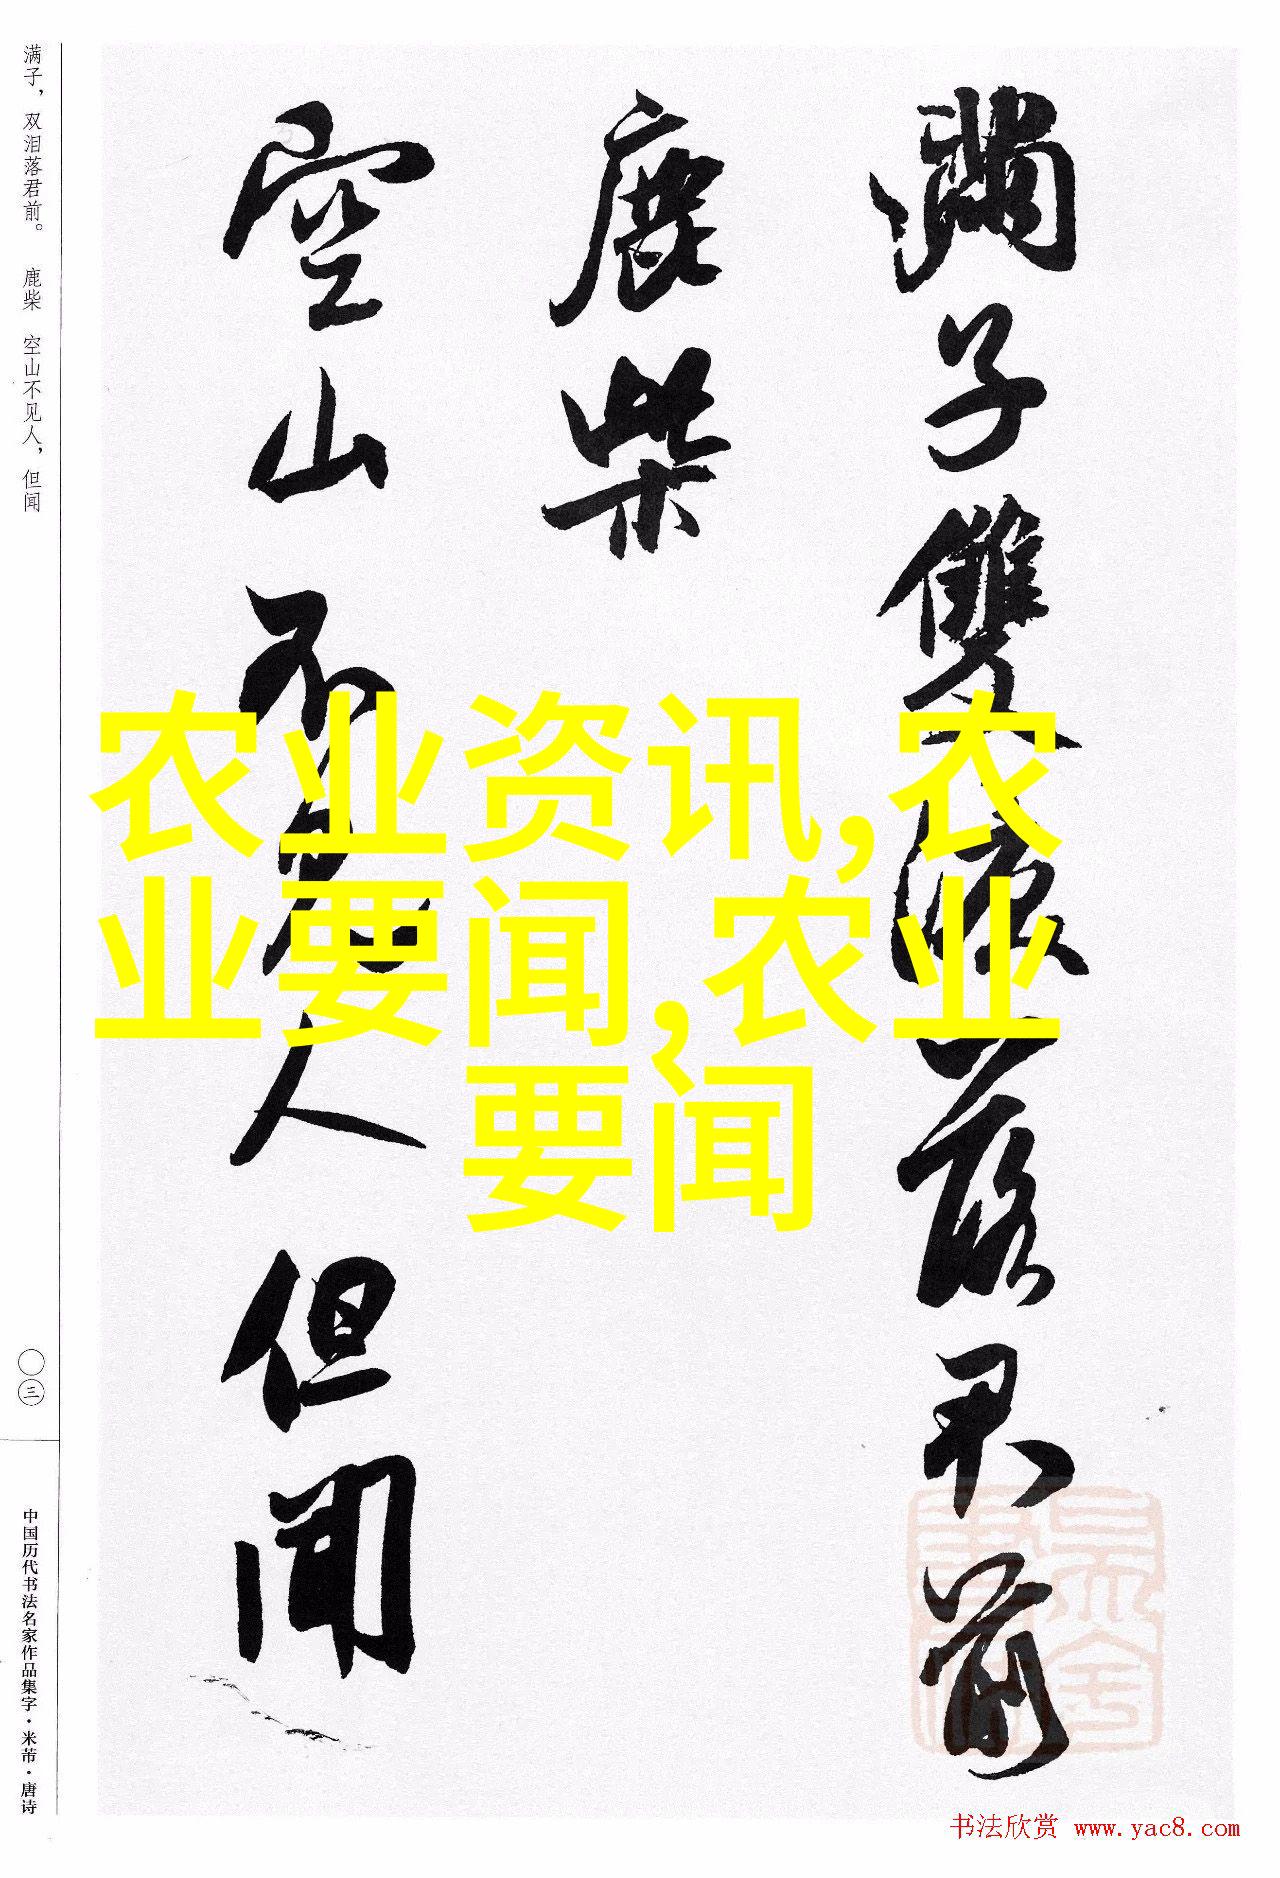 满子，双泪落君前。 鹿柴 空山不见人，但闻
三
中国历代书法名家作品集字·米芾·唐诗
滿子雙淚落君前
鹿柴
空山不見人但聞
农业资讯,农
业要闻,农业
要闻
书法欣赏 www.yac8.com